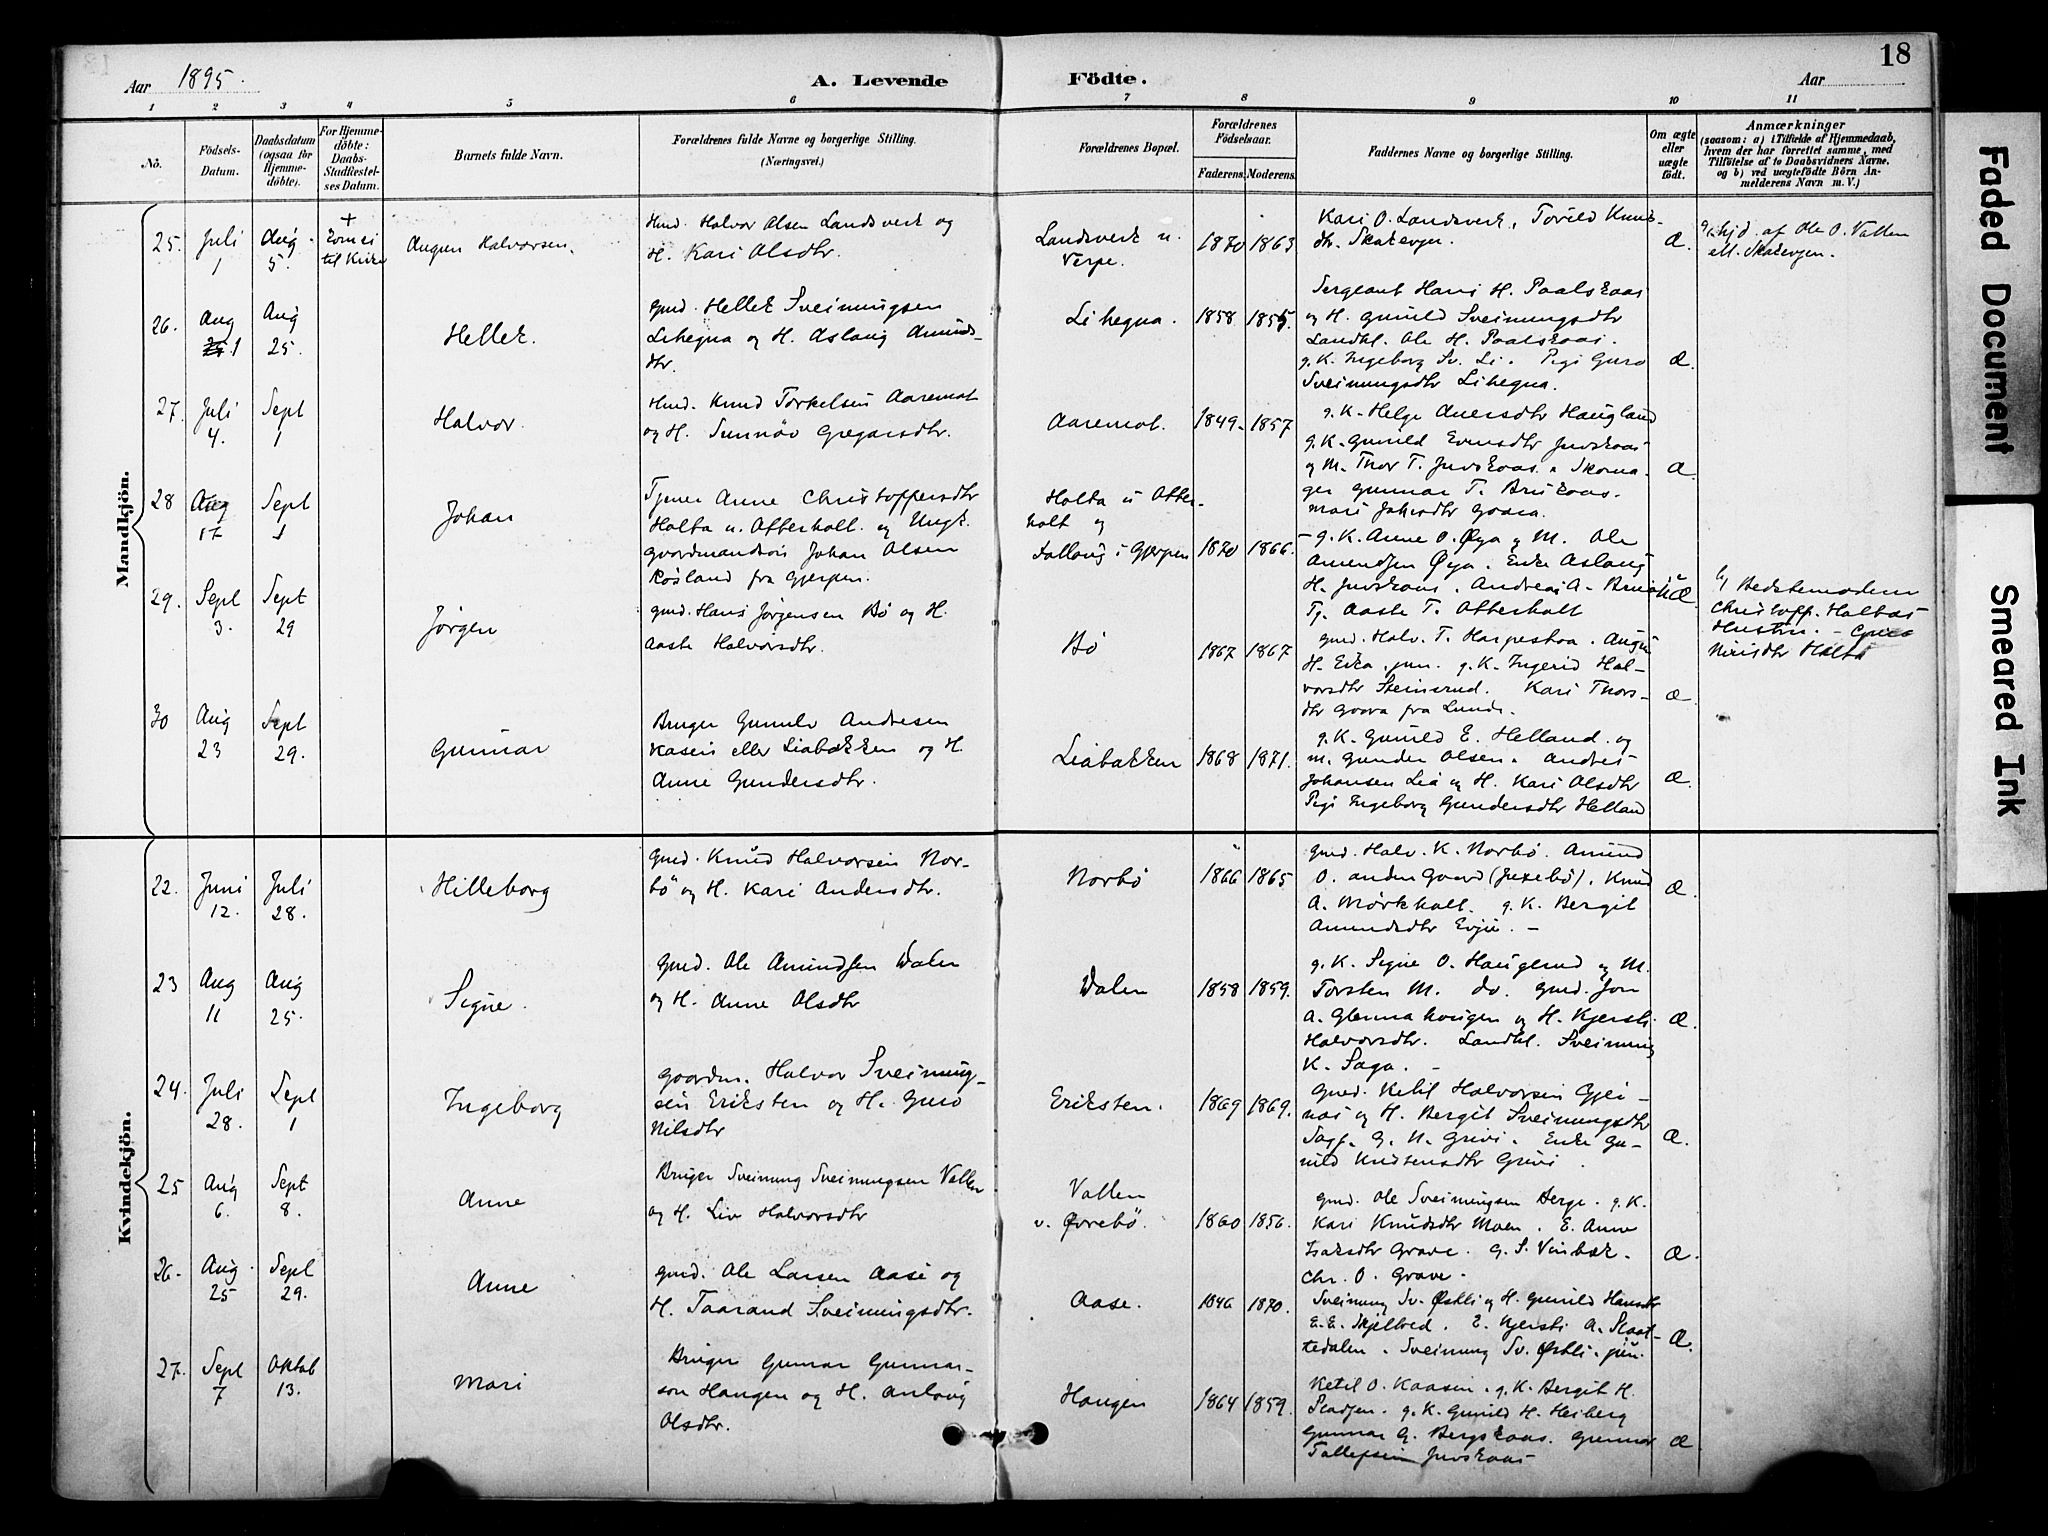 18
Aar 1895. A. Levende Födte. Aar
1 2 3 4 5 6 7 8 9 10 11
No. Födsels-Datum. Daabsdatum (ogsaa for Hjemmedöbte). For Hjemmedöbte: Daabs-Stadfæstelses Datum. Barnets fulde Navn. Forældrenes fulde Navne og borgerlige Stilling. (Næringsvei.) Forældrenes Bopæl. Forældrenes Födselsaar. Faderens. Moderens. Faddernes Navne og borgerlige Stilling. Om ægte eller uægte födt. Anmærkninger (saasom: a) i Tilfælde af Hjemmedaab, hvem der har forrettet samme, med Tilföielse af to Daabsvidners Navne. og b) ved uægtefödte Börn Anmelderens Navn m. V.)
Mandkjön.
25. Juli 1 Aug. 5. + til Kirke Augun Halvorsen.
Hmd. Halvor Olsen Landsverk og
H. Kari Olsdtr.
Landsverk u.
Verpe. 1870 1863
Kari O. Landsverk, Torild Knuds-
dtr. Skatevjen. Æ.
hjd. af Ole O. Vallen
ell. Skatevjen.
26. Aug 1 Aug 25. Hellek.
Gmd. Hellek Sveinungsen
Lihegna og H. Aslaug Amunds-
dtr.
Lihegna. 1858 1855.
Sergeant Hans H. Paalskaas
og H. Gunild Sveinungsdtr
Landhl. Ole H. Paalskaas.
g. K. Ingeborg Sv. Li. Pigi Guro Æ.
Sveinungsdtr Lihegna.
27. Juli 4. Sept 1 Halvor.
Hmd. Knud Torkelsen Aaremot
og H. Sunnöv Gregarsdtr.
Aaremot. 1849. 1857
g. K. Helge Aversdtr Haugland
g. K. Gunild Evensdtr Juvskaas
og M. Thor T. Juvskaas. Skoma- Æ
ger Gunnar T. Briskaas.
Mari Goara.
28 Aug 17 Sept 1 Johan
Tjener Anne Christoffersdtr
Holta u. Otterholt. og Ungk.
Gaardmandssön Johan Olsen
Röisland fra Gjerpen.
Holta u Otter-
holt og
i Gjerpen 1870 1866.
g. K. Anne O. Øya og M. Ole
Amundsen Øya. Enke Aslaug
H. Juvskaas. Andreas A. uÆ.
Tj. Aaste T. Otterholt
b/ Bedstemoderen
Christoff. Holtas
Hustru.
Holta
29. Sept 3. Sept 29 Jørgen
Gmd. Hans Jørgensen Bø og H.
Aaste Halvorsdtr.
Bø 1867 1867
Gmd. Halv. T. Harpestoa. Augun
H. Eika. jun. g. K. Ingerid Hal-
vorsdtr Steinsrud. Kari Thors- Æ
dtr Goara fra Lunde.
30 Aug 23 Sept 29. Gunnar
Bruger Gunulv Andresen
Kasein eller Liabakken og H.
Anne Gundersdtr.
Liabakken 1868 1871.
g. K. Gunild E. Helland. og
M. Gunder Olsen. Andres
Johansen Lia og H. Kari Olsdtr Æ.
Pigi Ingeborg Gundersdtr Helland
Kvindekjön.
22. Juni 12. Juli 28. Hilleborg
Gmd. Knud Halvorsen Nor-
bö og H. Kari Andersdtr.
Norbö 1866 1865
Gmd. Halv. K. Norbö. Amund
O. anden Gaard (Juxebö). Knud Æ.
A. Mörkholt. g. K. Bergit
Amundsdtr Evju. –
23 Aug 11 Aug 25. Signe.
Gmd. Ole Amundsen Valen
og H. Anne Olsdtr
Valen 1858 1859.
g. K. Signe O. Haugerud og M.
Torsten M. do. Gmd. Jon
A. Glennahougen og H. Kjersti Æ.
Halvorsdtr. Landhl. Sveinung
K. Saga. –
24. Juli 28. Sept 1 Ingeborg
Gaardm. Halvor Sveinung-
sen Eriksten og H. Guro
Nilsdtr
Eriksten. 1869 1869.
Gmd. Ketil Halvorsen Gjei-
nas og H. Bergit Sveinungsdtr
G. N. Grivi. Enke Gu- Æ.
nild Knudsensdtr Grivi.
25 Aug 6. Sept 8. Anne
Bruger Sveinung Sveinungsen Vallen
og H. Liv Halvorsdtr
Vallen
v. Øvrebö. 1860 1856.
Gmd. Ole Sveinungsen Berge. g. K.
Kari Knudsdtr Moen. E. Anne
Isaksdtr Grave. G. S. Vinbæk. Æ.
Chr. O. Grave.
26. Aug 25 Sept 29. Anne
Gmd. Ole Larsen Aase og
H. Taarand Sveinungsdtr.
Aase. 1846 1870.
Sveinung Sv. Østli og H. Gunild Hansdtr
E. E. Skjelbred. E. Kjersti A. Slaat-
tedalen. Sveinung Sv. Østli. jun. Æ.
27. Sept 7 Oktob 13. Mari
Bruger Gunnar Gunnar-
son Haugen og H. Anlaug
Olsdtr.
Haugen 1864 1859.
Ketil O. Kaasen. g. K. Bergit H.
g. K. Gunild H. Heiberg
Gunnar G. Bergskaas. Gunnar Æ
Tallefsen Juvskaas
Faded Document
Smeared Ink